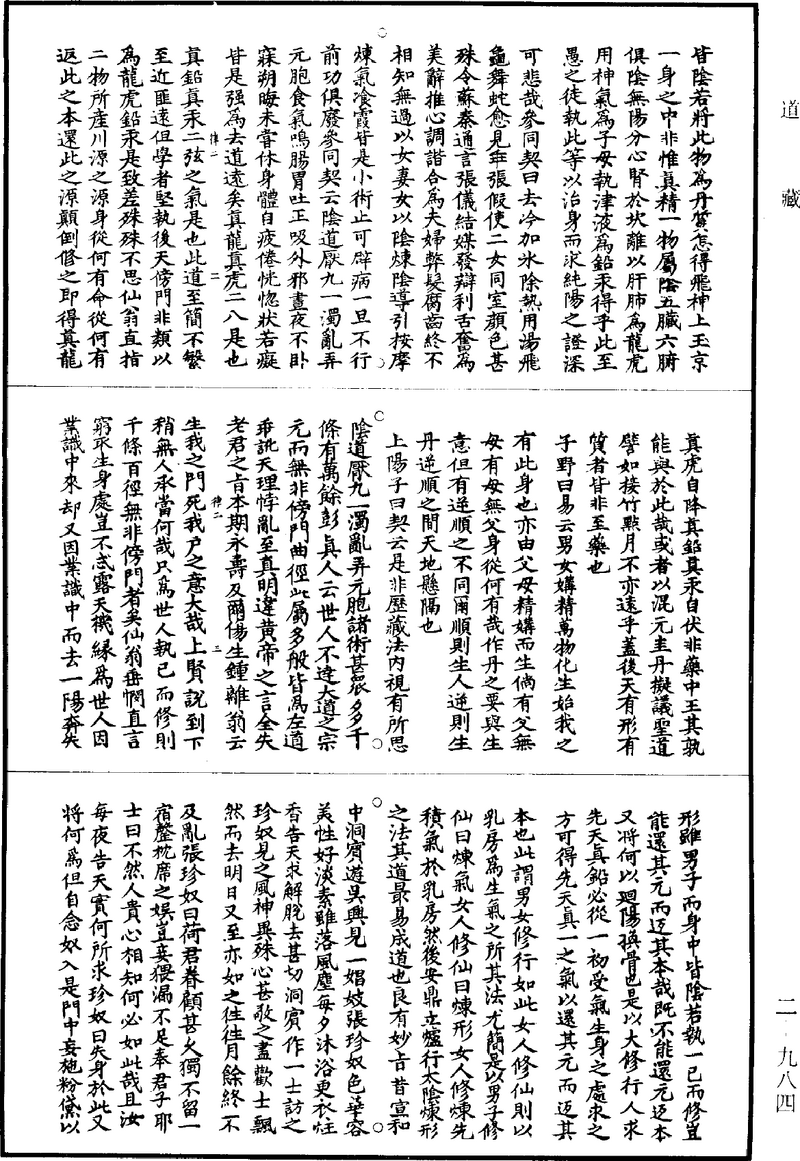 道藏
皆陰若將此物爲丹質怎得飛神上玉京
一身之中非惟眞精一物屬陰五臟六腑
俱陰無陽分心腎於坎離以肝肺爲龍虎
用神氣爲子母執津液爲鉛汞得乎此至
愚之徒執此等以治身而求純陽之證深
可悲哉參同契曰去冷加氷除熱用湯飛
龜舞蛇愈見乖張假使二女同室顏色甚
殊令蘇秦通言張儀結媒發辯利舌奮爲
美辭推心調諧合爲夫婦弊髮腐齒終不
相知無過以女妻女以陰煉陰導引按摩
煉氣飡霞皆是小術止可辟病一旦不行
前功俱廢參同契云陰道厭九一濁亂弄
元胞食氣鳴腸胃吐正吸外邪晝夜不卧
寐朔晦未甞休身體自疲倦恍惚狀若癡
皆是强爲去道遠矣眞龍眞虎二八是也
眞鉛眞汞二弦之氣是也此道至簡不繁
至近匪遠但學者堅執後天傍門非類以
爲龍虎鉛汞是致差殊殊不思仙翁直指
二物所産川源之源身從何有命從何有
返此之本還此之源顚倒修之即得眞龍
律二
二
眞虎自降眞鉛眞汞自伏非藥中王其孰
能與於此哉或者以混元圭丹擬議聖道
譬如接竹點月不亦遠乎蓋後天有形有
質者皆非至藥也
子野曰易云男女媾精萬物化生始我之
有此身也亦由父母精媾而生倘有父無
母有母無父身從何有哉作丹之要與生
意但有逆順之不同爾順則生人逆則生
丹逆順之間天地懸隔也
上陽子曰契云是非歷藏法内視有所思
陰道厭九一濁亂弄元胞諸術甚衆多千
條有萬餘彭眞人云世人不達大道之宗
元而無非傍門曲徑此屬多般皆爲左道
乖訛天理悖亂至真明違黄帝之言全失
老君之旨本期永壽及爾傷生鍾離翁云
生我之門死我户之意大哉上賢説到下
稍無人承當何哉只爲世人執已而修則
千條百徑無非傍門者矣仙翁垂憫直言
窮取生身處豈不忒露天機緣爲世人因
業識中來却又因業識中而去一陽奔失
律二
三
形雖男子而身中皆陰若執一已而修豈
能還其元而返其本哉既不能還元返本
又將何以廻陽換骨也是以大修行人求
先天眞鉛必從一初受氣生身之處求之
方可得先天真一之氣以還其元而返其
本也此謂男女修行如此女人修仙則以
乳房爲生氣之所其法尤簡是以男子修
仙曰煉氣女人修仙曰煉形女人修煉先
積氣於乳房然後安鼎立爐行太陰煉形
之法其道最易成道也良有妙旨昔宣和
中洞賓遊吳興見一娼妓張珍奴色華容
美性好淡素雖落風塵每夕沐浴更衣炷
香告天求解脱去甚切洞賓作一士訪之
珍奴見之風神異殊心甚敬之盡歡士飄
然而去明日又至亦如之徃徃月餘終不
及亂張珍奴曰荷君眷顧甚久獨不留一
宿罄枕席之娛豈妾猥漏不足奉君子耶
士曰不然人貴心相知何必如此哉且汝
每夜告天實何所求珍奴曰失身於此又
將何爲但自念奴入是門中妄施粉黛以
二－九八四